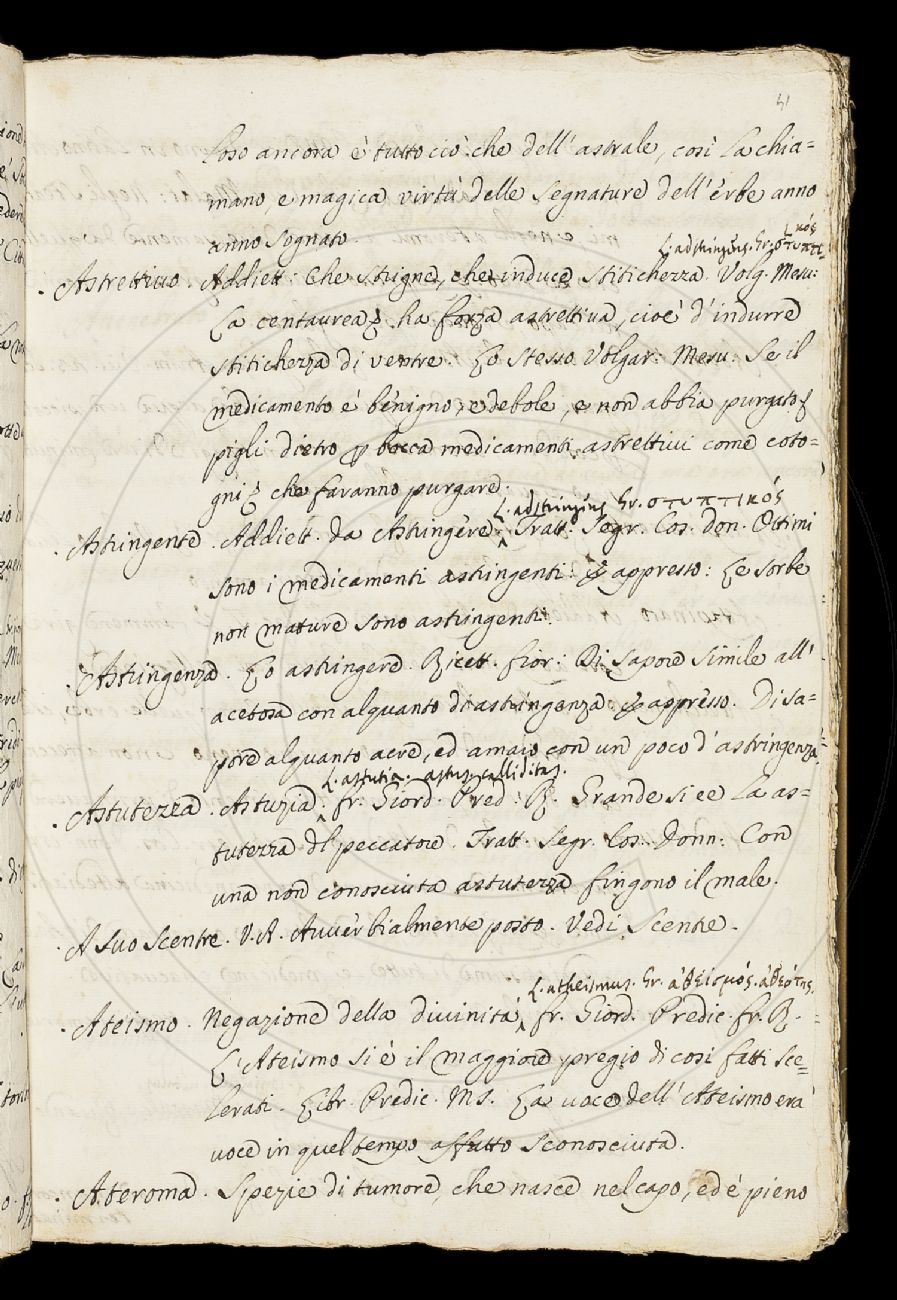 51
loso ancora è tutto ciò che dell' astrale, così la chia=
mano, e magica virtù delle segnature dell' erbe anno
anno sognato.
L. adstringens. Gr. στυπτι=
κός
Astrettivo. Addiett: Che strigne, che induce stitichezza. Volg. Mesu:
La centaurea ha forza astrettiva, cioè d' indurre
stitichezza di ventre. Lo stesso Volgar: Mesu: Se il
medicamento è benigno, e debole, e non abbia purgato
pigli dietro bocca medicamenti astrettivi come coto=
gni che faranno purgare.
L. adstringens Gr. στυπτικός
Astringente. Addiett. da Astingere. Tratt. Segr. Cos. don. Ottimi
sono i medicamenti astringenti: appresso: Le sorbe
non mature sono astringenti.
Astringenza. Lo astringere. Ricett. fior: Di sapore simile all'
acetosa con alquanto di astringenza appresso. Di sa=
pore alquanto acre, ed amaro con un poco d' astringenza
L. astutia. astus. calliditas.
Astutezza. Astuzia. fr. Giord. Pred. R. Grande si ee la as=
tutezza dl peccatore. Tratt. Segr. Cos. Donn. Con
una non conosciuta astutezza fingono il male.
A suo scentre. V. A. Avverbialmente posto. Vedi Scentre.
L. atheismus. Gr. ἀθεϊσμός. ἀθεότης.
Ateismo. Negazione della divinità, fr. Giord. Predic. fr. R.
L' Ateismo si è il maggiore pregio di così fatti sce=
lerati. Libr. Predic. MS. La voce dell' Ateismo era
voce in quel tempo affatto sconosciuta.
Ateroma. Spezie di tumore, che nasce nel capo, ed è pieno